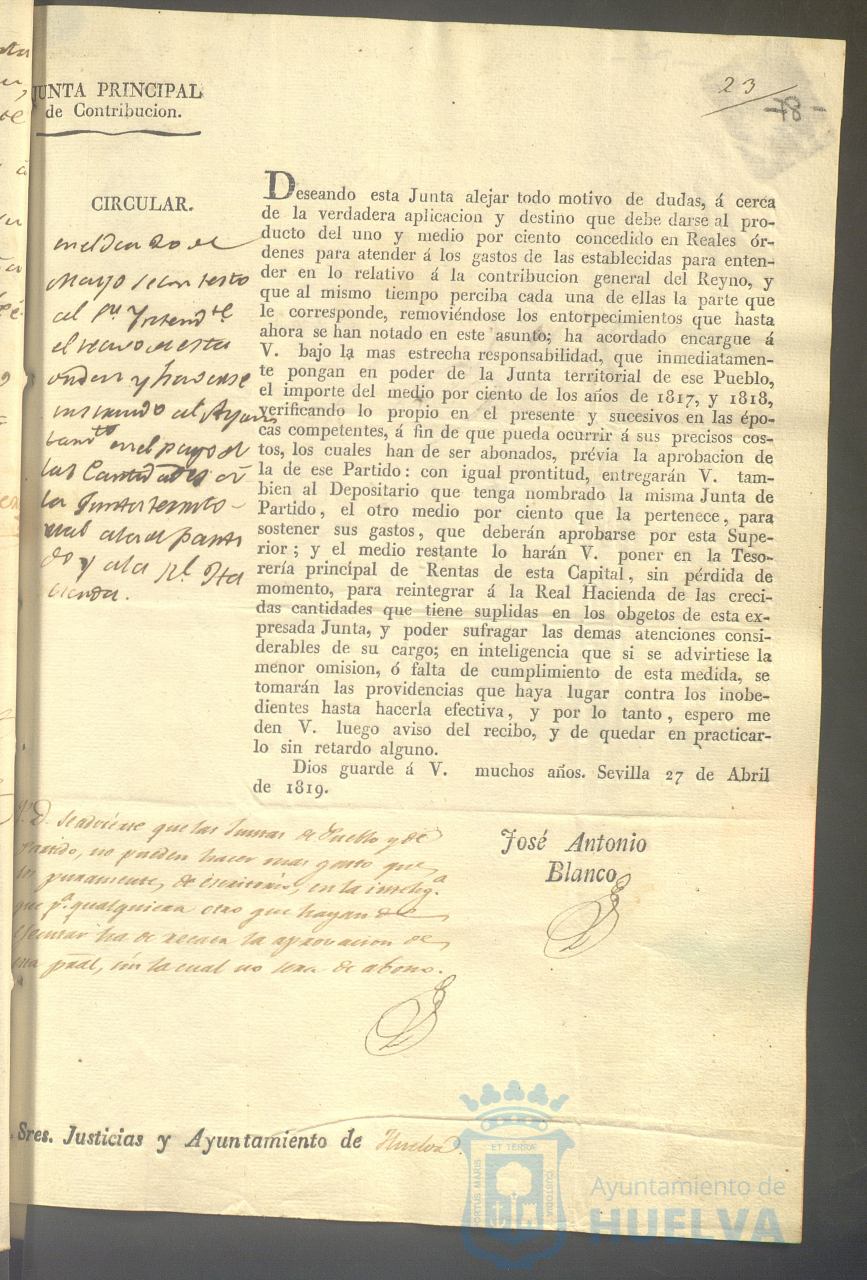 23
78
JUNTA PRINCIPAL
de Contribucion.
CIRCULAR.
en el dia 20 de
Mayo se contesto
al Sr. Yntendte
el recivo de esta
orden y
instando al Ayun
tamto en el pago de
las Cantidades
la Junta territo-
rial a la del parti
do y a la Rl. Ha
cienda.
Deseando esta Junta alejar todo motivo de dudas, á cerca
de la verdadera aplicacion y destino que debe darse al pro-
ducto del uno y medio por ciento concedido en Reales ór-
denes para atender á los gastos de las establecidas para enten-
der en lo relativo á la contribucion general del Reyno, y
que al mismo tiempo perciba cada una de ellas la parte que
le corresponde, removiéndose los entorpecimientos que hasta
ahora se han notado en este asunto; ha acordado encargue á
V. bajo la mas estrecha responsabilidad, que inmediatamen-
te pongan en poder de la Junta territorial de ese Pueblo,
el importe del medio por ciento de los años de 1817, y 1818,
verificando lo propio en el presente y sucesivos en las épo-
cas competentes, á fin de que pueda ocurrir á sus precisos cos-
tos, los cuales han de ser abonados, prévia la aprobacion de
la de ese Partido: con igual prontitud, entregarán V. tam-
bien al Depositario que tenga nombrado la misma Junta de
Partido, el otro medio por ciento que la pertenece, para
sostener sus gastos, que deberán aprobarse por esta Supe-
rior; y el medio restante lo harán V. poner en la Teso-
rería principal de Rentas de esta Capital, sin pérdida de
momento, para reintegrar á la Real Hacienda de las creci-
das cantidades que tiene suplidas en los obgetos de esta ex-
presada Junta, y poder sufragar las demas atenciones consi-
derables de su cargo; en inteligencia que si se advirtiese la
menor omision, ó falta de cumplimiento de esta medida, se
tomarán las providencias que haya lugar contra los inobe-
dientes hasta hacerla efectiva, y por lo tanto, espero me
den V. luego aviso del recibo, y de quedar en practicar-
lo sin retardo alguno.
Dios guarde á V. muchos años. Sevilla 27 de Abril
de 1819.
P. D. Se advierte que las Juntas de Pueblo y de
Partido, no pueden hacer mas gasto que
los puramente, de escritorio, en la intelig.a
que p.a qualquiera otro que hayan de
ejecutar ha de recaer la aprovacion de
esta pral, sin la cual no sera de abono.
José Antonio
Blanco
Sres. Justicias y Ayuntamiento de Huelva
PORTUS MARIS
ET TERRÆ
CUSTODIA
Ayuntamiento de
HUELVA